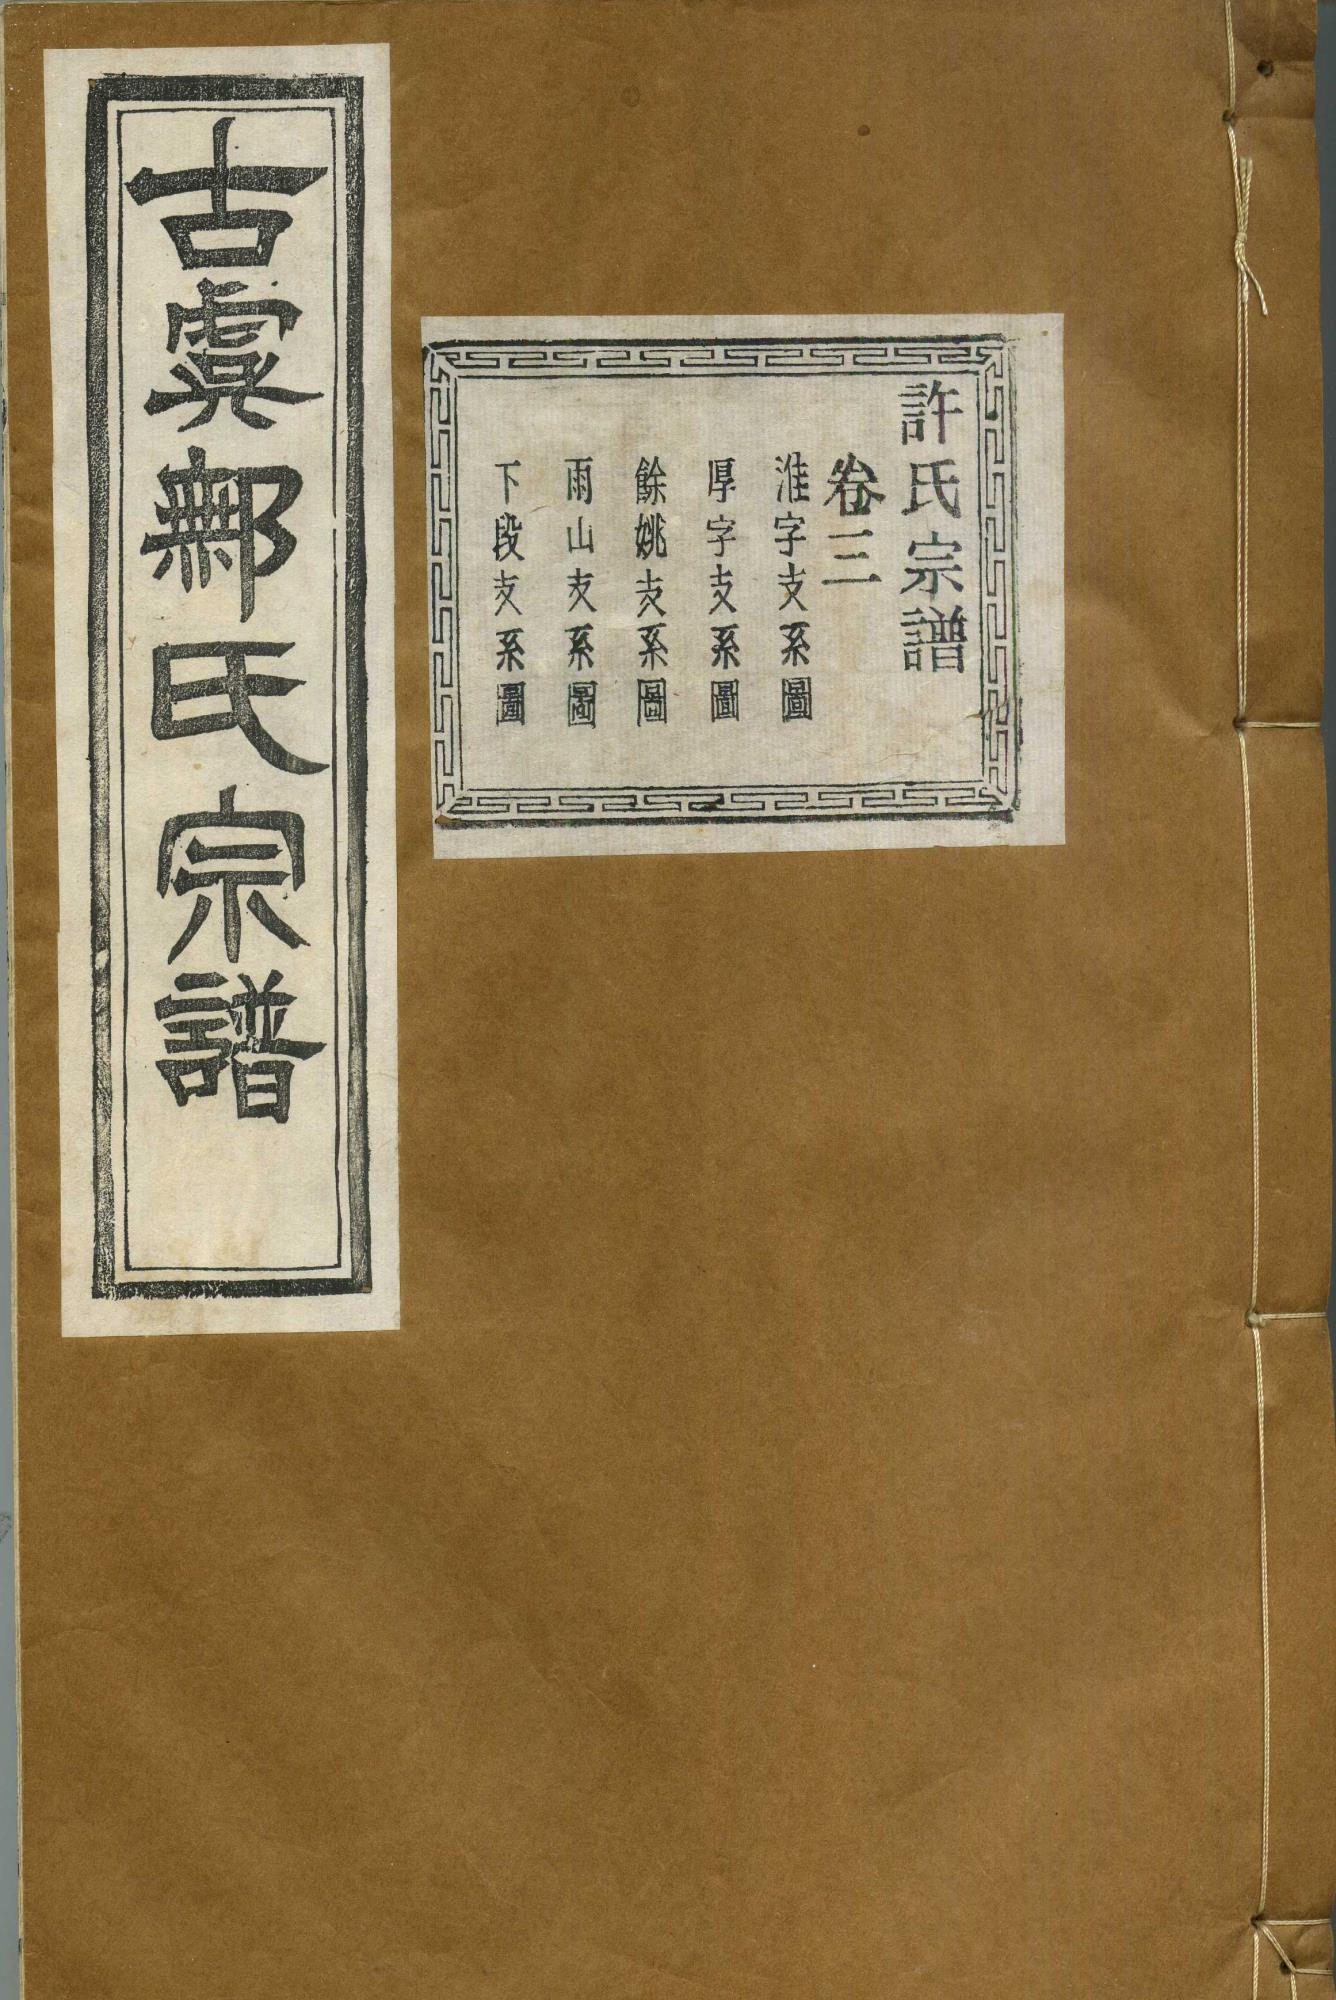 古虞鄦氏宗譜
許氏宗譜
卷三
淮字支系圖
厚字支系圖
餘姚支系圖
雨山支系圖
下段支系圖